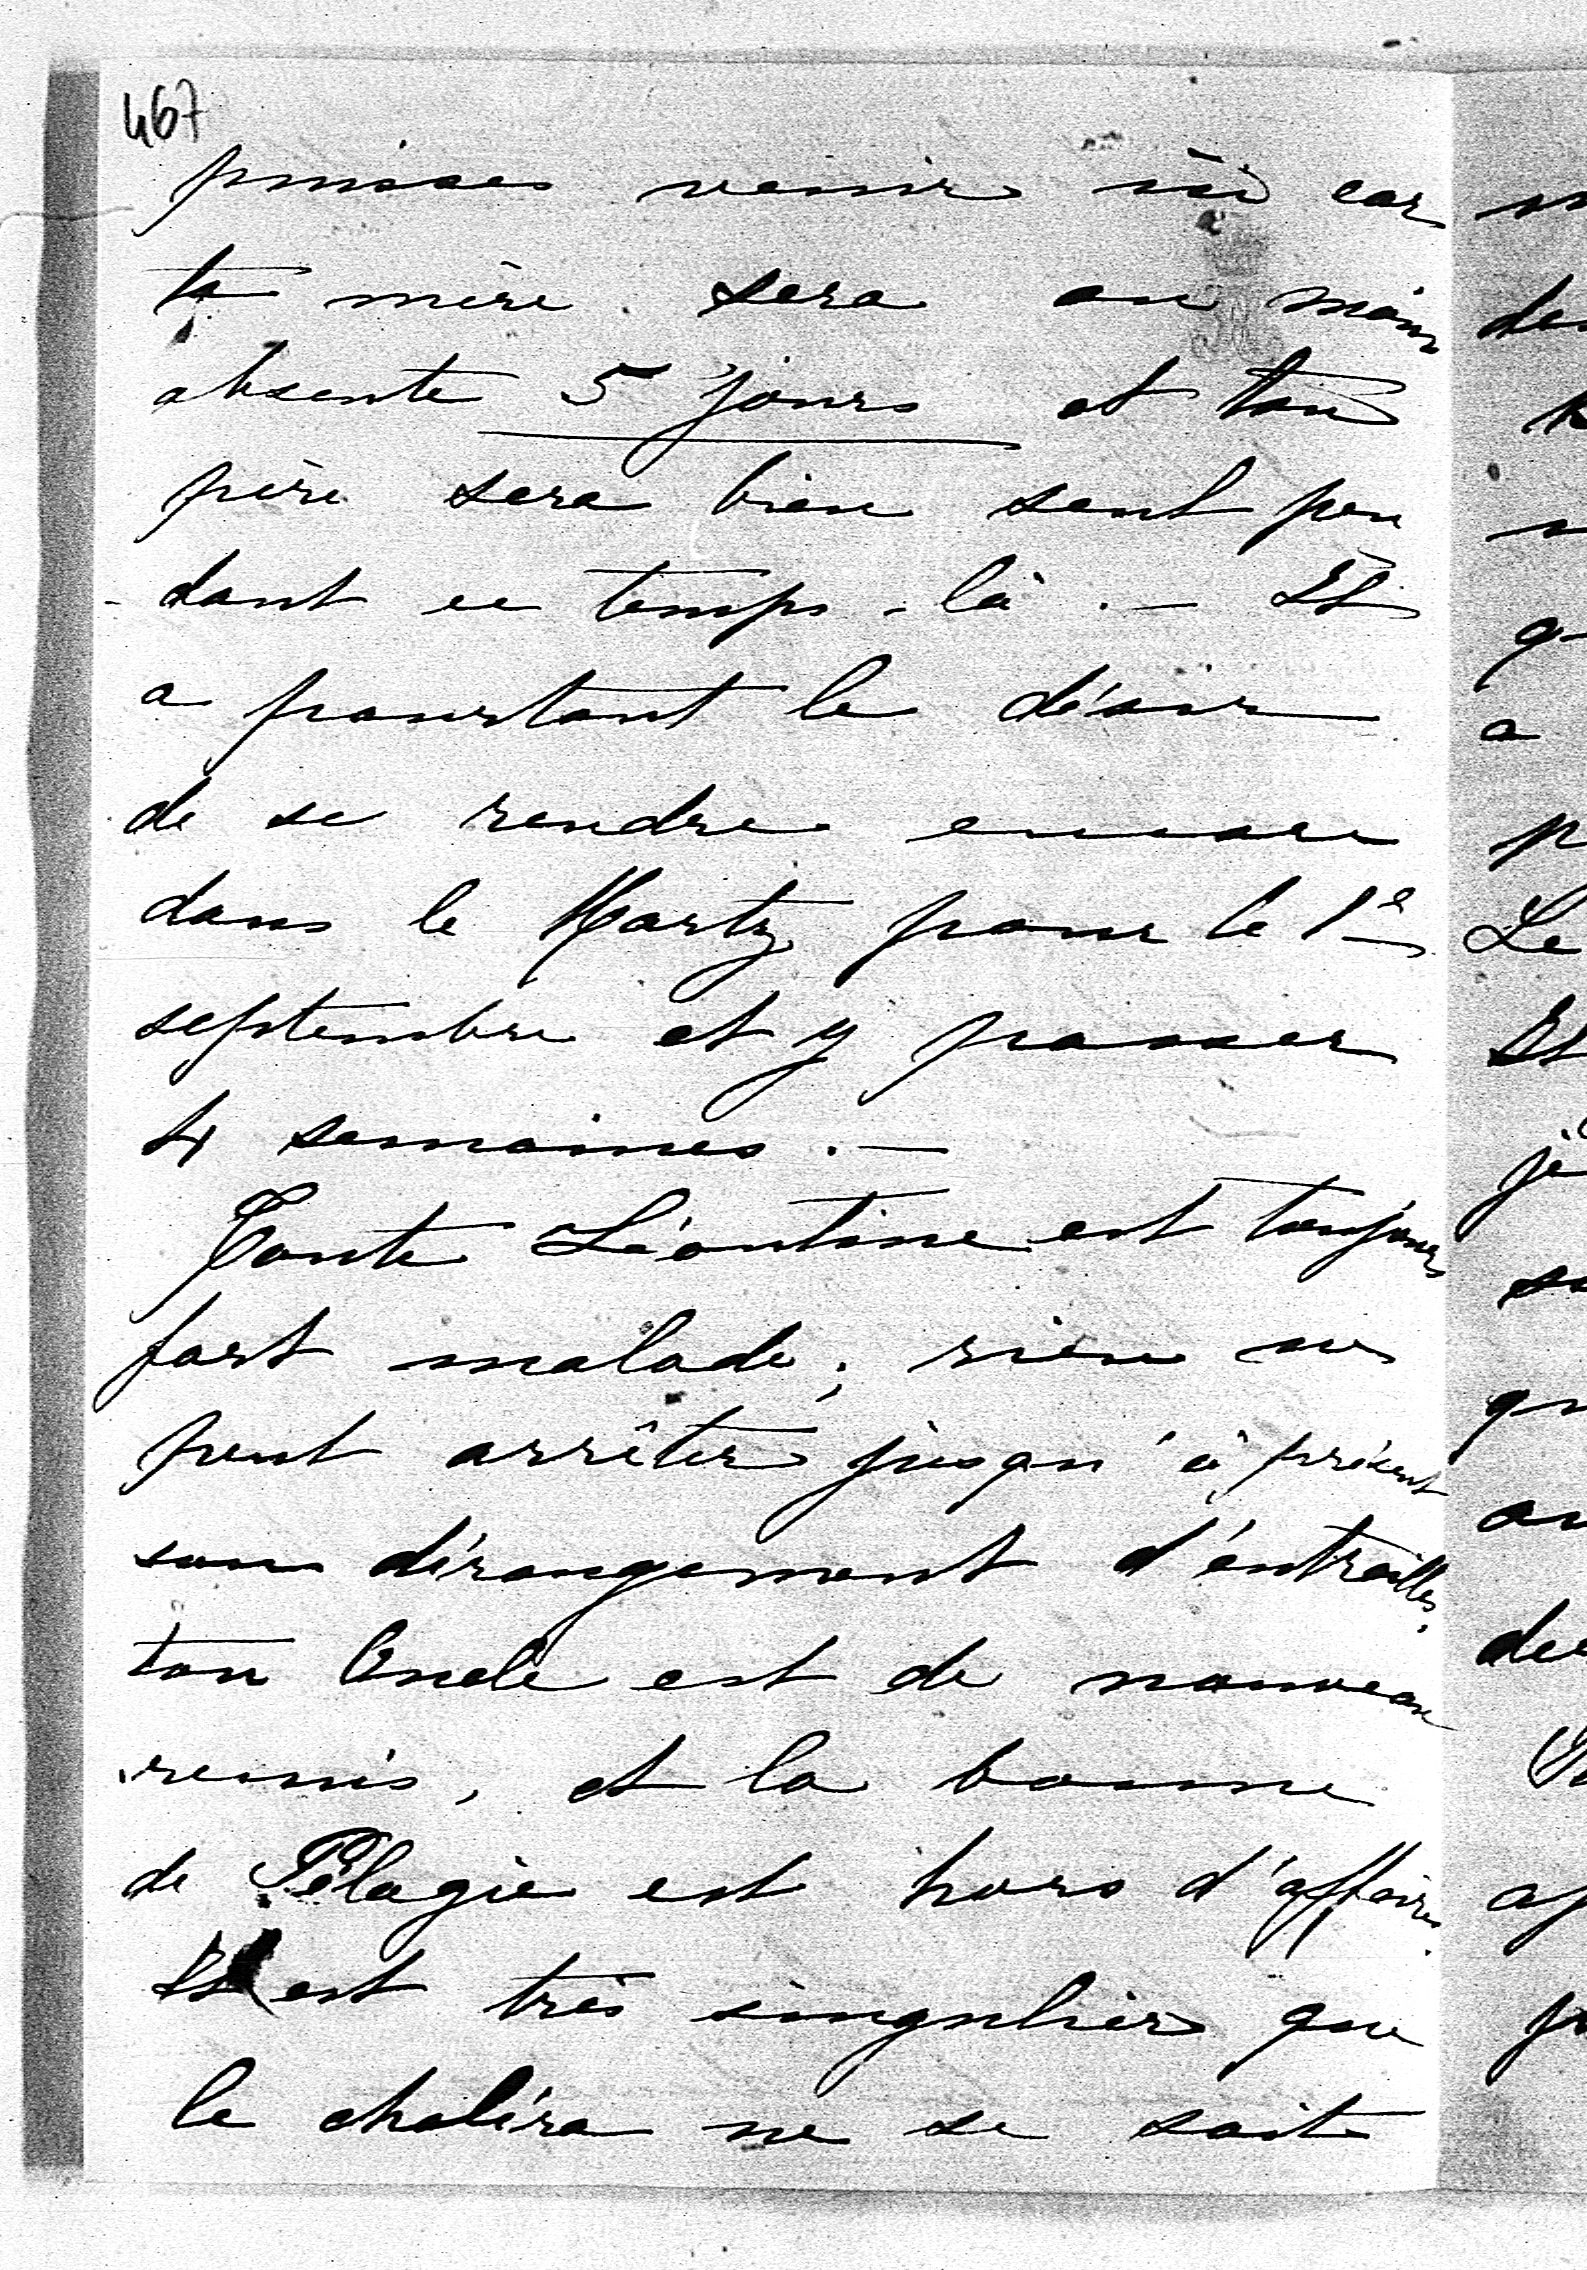 467
puisses venir ici car
ta mère sera au moins
absente 5 jours et ton
père sera bien seul pen
-dant ce temps-là. — Il
a pourtant le désir
de se rendre encore
dans le Hartz pour le 1er
septembre et y passer
4 semaines. —
Tante Léontine est toujours
fort malade; rien ne
peut arrêter jusqu'à présent
son dérangement d'entrailles.
ton Oncle est de nouveau
remis, et la bonne
de Pélagie est hors d'affaire.
Il est très singulier que
le choléra ne se soit